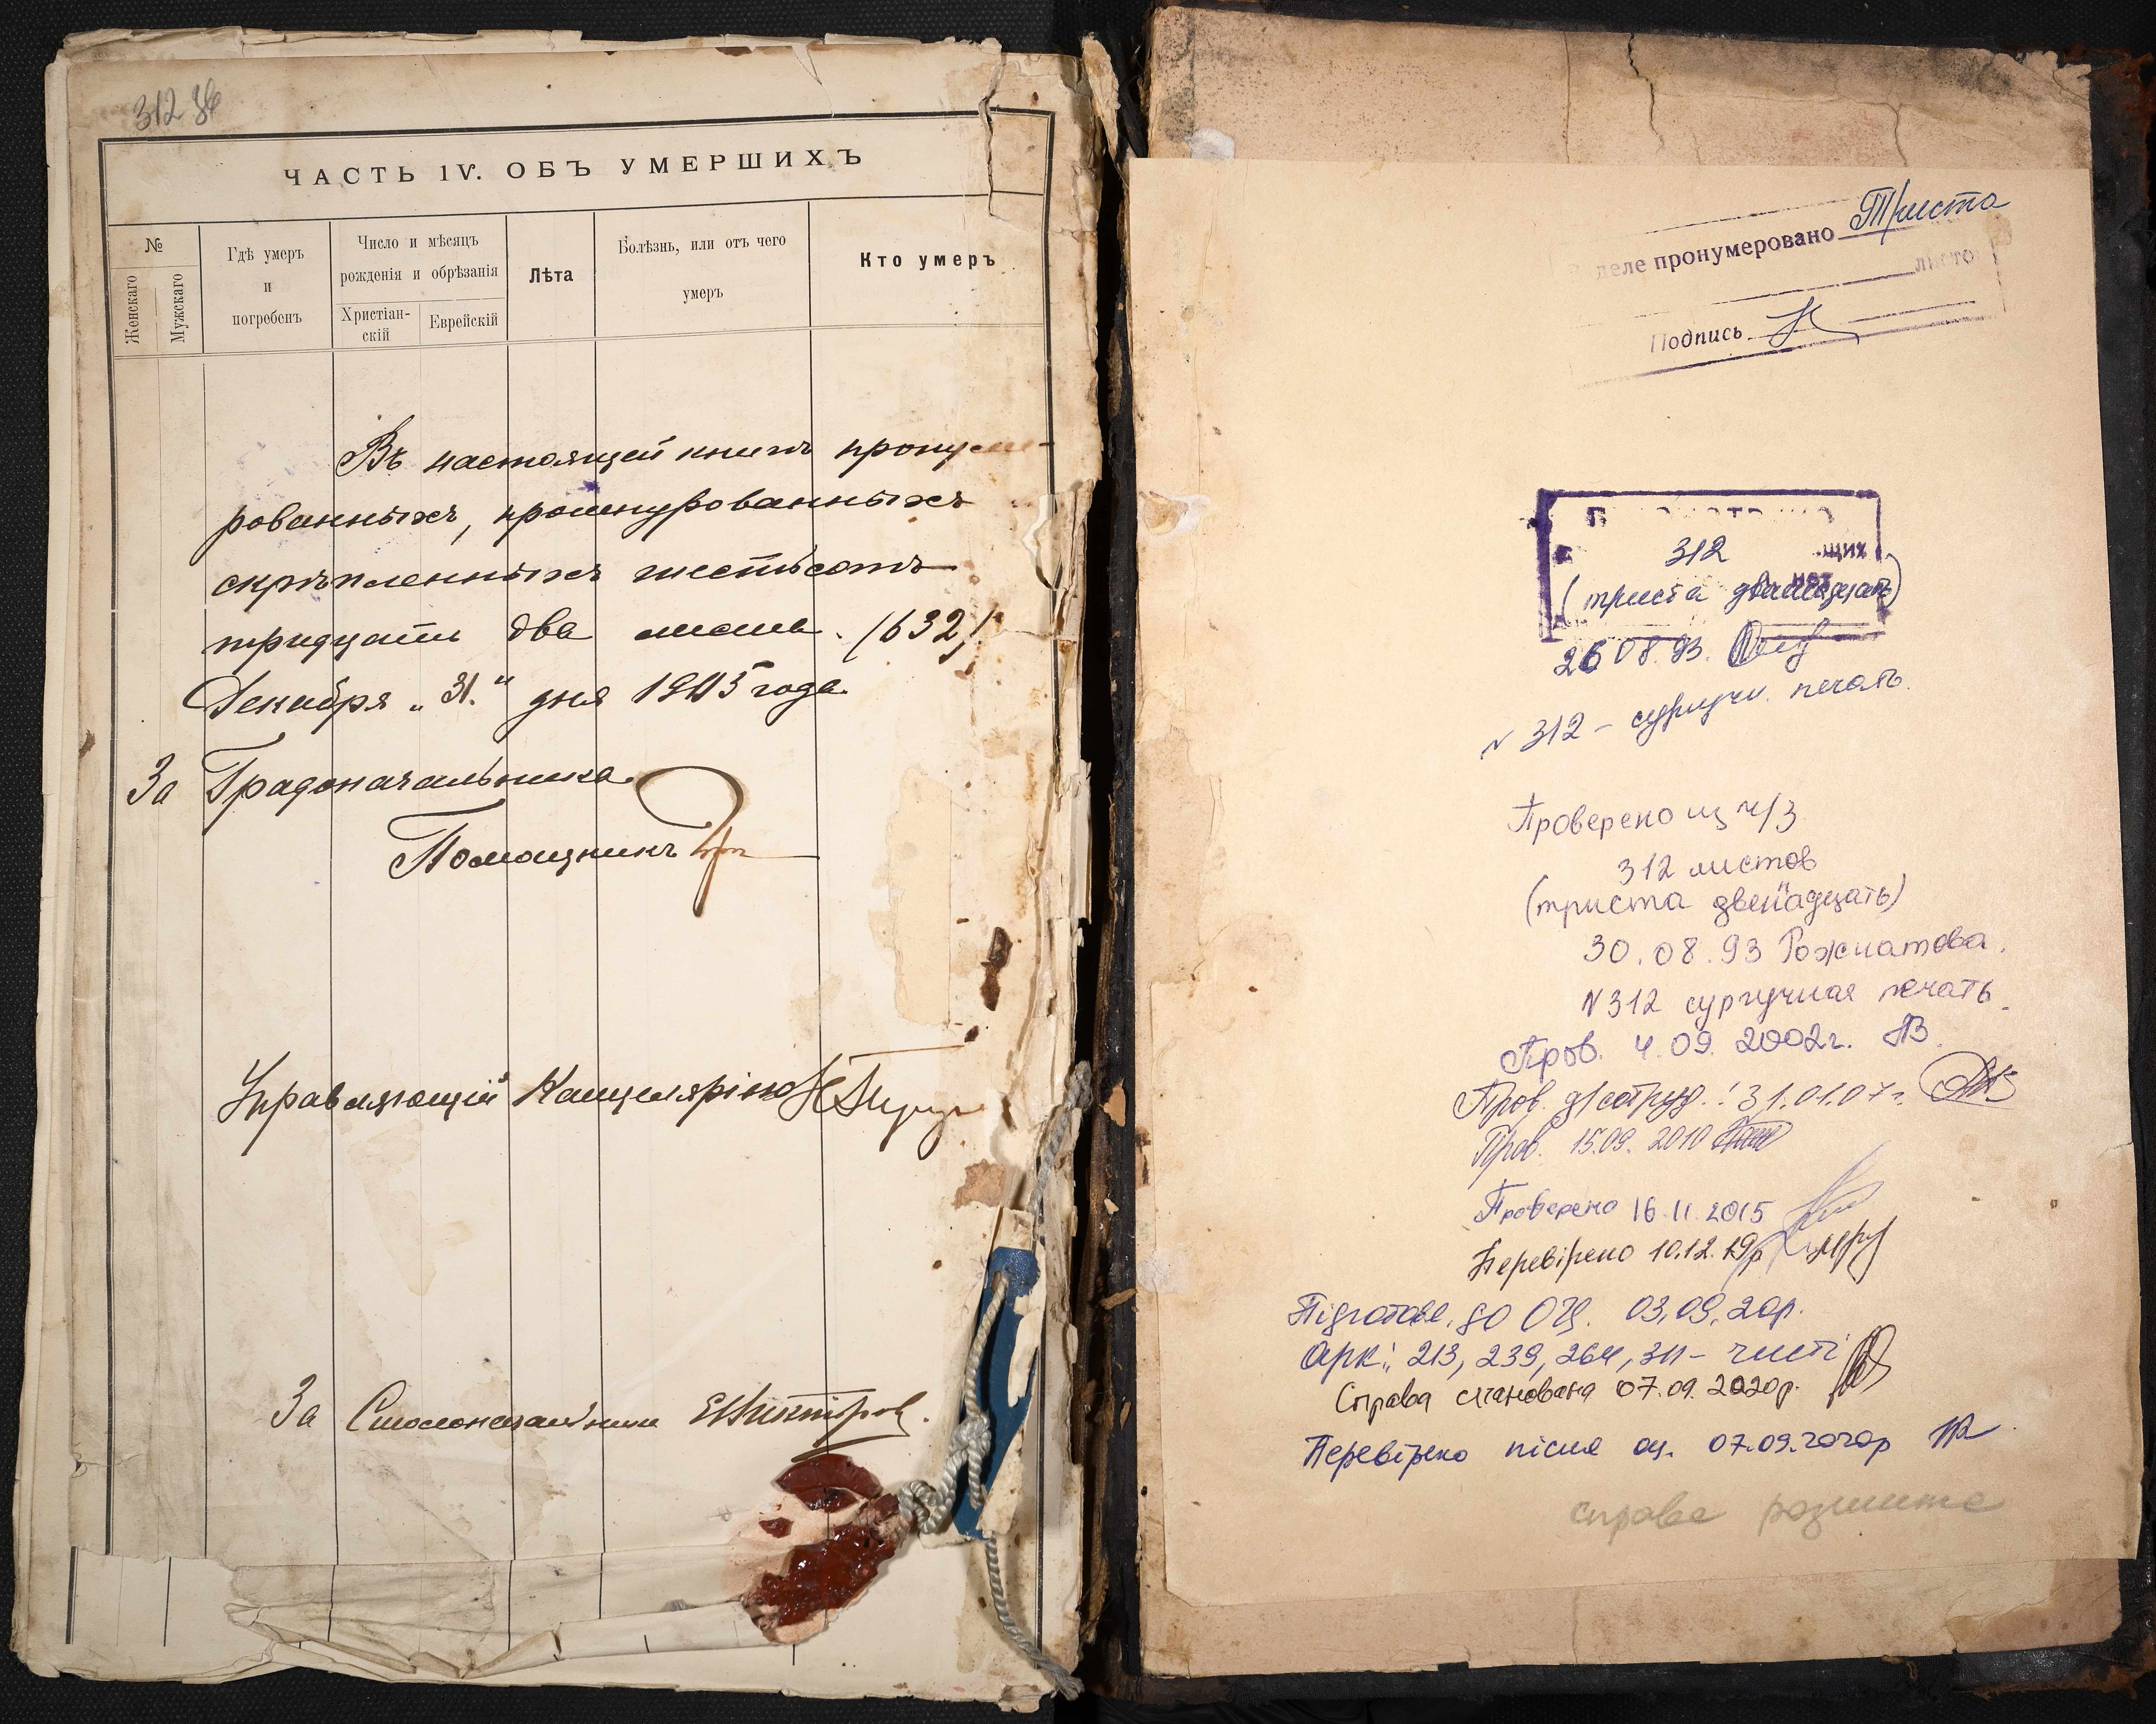 312 зв
ЧАСТЬ IV. ОБЪ УМЕРШИХЪ
№
Женскаго
Мужскаго
Гдѣ умеръ
и
погребенъ
Число и мѣсяцъ
рожденія и обрѣзанія
Христіан-
скій
Еврейскій
Лѣта
Болѣзнь, или отъ чего
умеръ
Кто умеръ
Въ настоящей книгѣ пронуме-
рованныхъ, прошнурованныхъ
скрѣпленныхъ шестьсотъ
тридцать два листа. (632)
Декабря „31.“ дня 1913 года.
За Градоначальника
Помощникъ
Управляющій Канцеляріею
За Столоначальника
деле пронумеровано Триста
листо
Подпись
312
щих
(триста двенадцать)
26 08.93.
№ 312 – сургучн. печать.
Проверено из ч/з
312 листов
(триста двенадцать)
30.08.93 Рожнатова.
№ 312 сургучная печать.
Пров. 4.09. 2002г.
Пров. 31.01.07г.
Пров. 15.09. 2010
Проверено 16.11.2015
Перевірено 10.12.19р
Підготовл. до ОЦ. 03.09.20р.
Арк.: 213, 239, 264, 311 – чисті
Справа сканована 07.09.2020р.
Перевірено після оц. 07.09.2020р
справа розшита